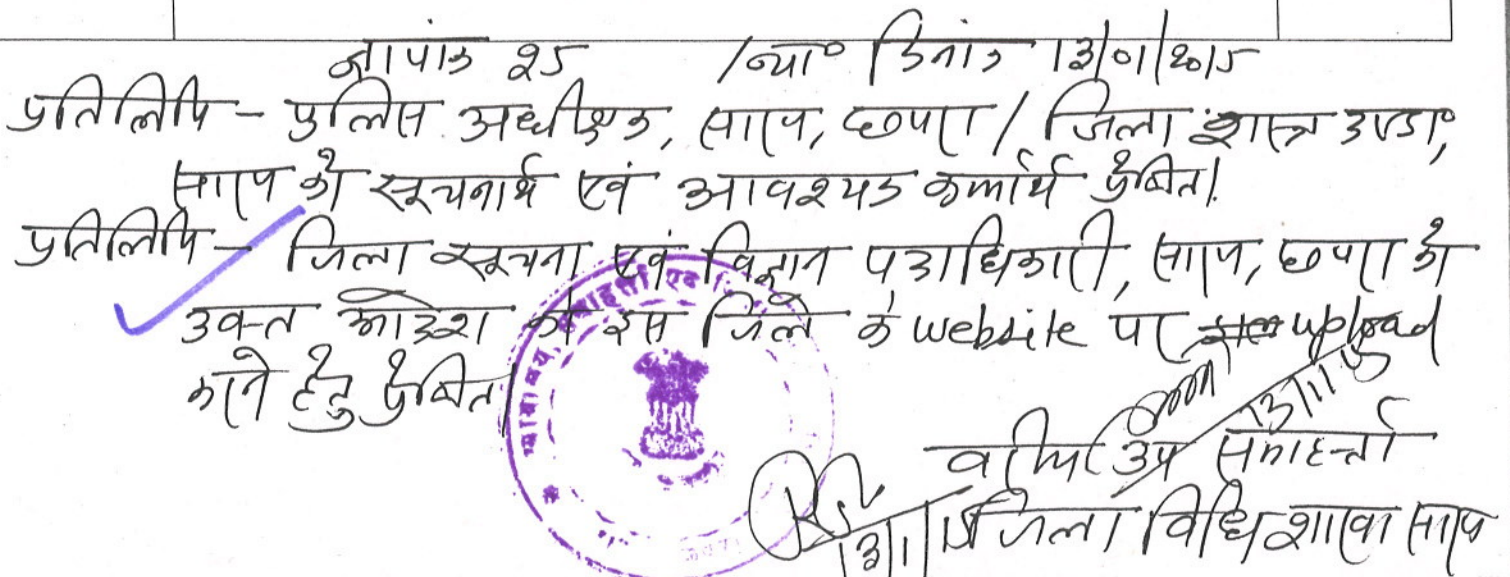 ज्ञापांक 25 /न्या० दिनांक 13/01/2015
प्रतिलिपि - पुलिस अधीक्षक, सारण, छपरा / जिला शस्त्र दण्डा०,
सारण को सूचनार्थ एवं आवश्यक कार्यार्थ प्रेषित।
प्रतिलिपि - जिला सूचना एवं विज्ञान पदाधिकारी, सारण, छपरा को
उक्त आदेश को इस जिले के website पर upload
करने हेतु प्रेषित।
समाहर्ता एवं
न्यायालय
13/1/15
वरीय उप समाहर्त्ता
13/1/15 जिला विधि शाखा सारण